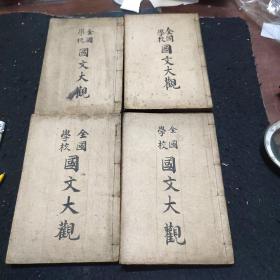 全國
學校
國文大觀
全國
學校
國文大觀
全國
學校
國文大觀
全國
學校
國文大觀